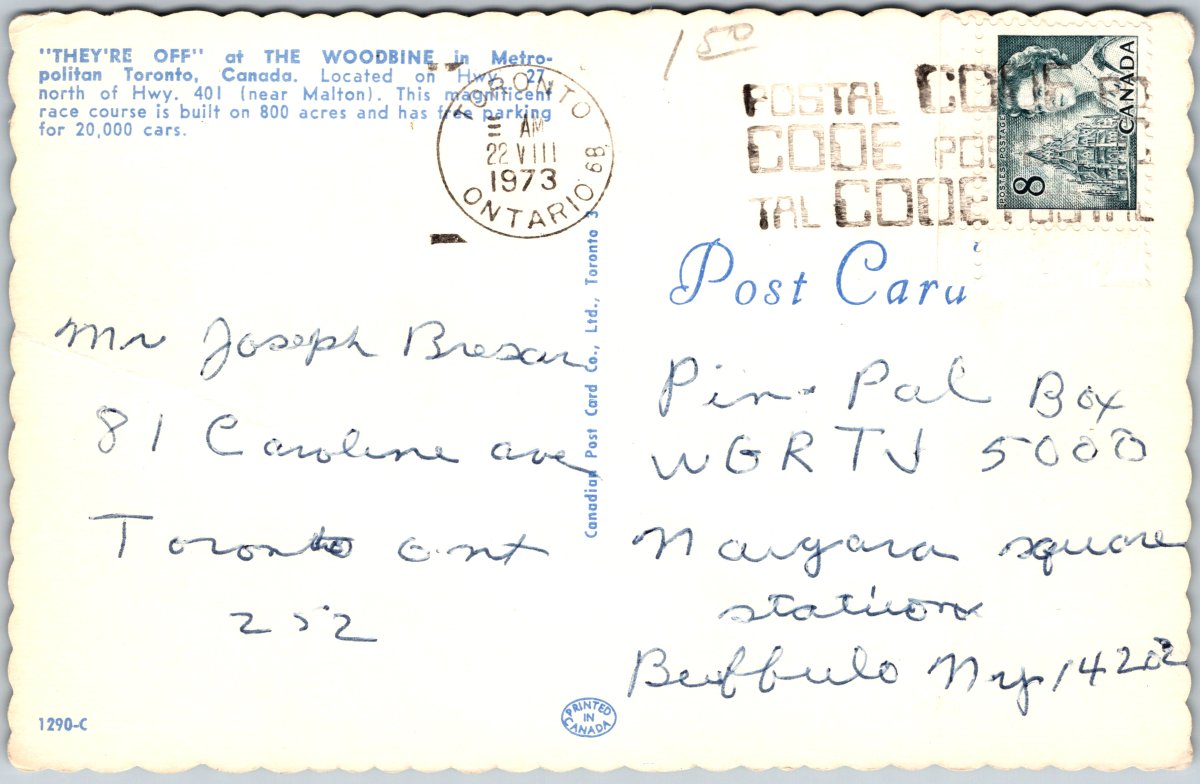 "THEY'RE OFF" at THE WOODBINE in Metro-
politan Toronto, Canada. Located on Hwy. 27
north of Hwy. 401 (near Malton). This magnificent
race course is built on 800 acres and has free parking
for 20,000 cars.
TORONTO
AM
22 VIII
1973
ONTARIO
1 50
POSTAL CODE PO
CODE POS
TAL CODE POSTAL
CANADA
POSTES POSTAGE
8
Post Card
Mr Joseph Bresar
81 Caroline ave
Toronto ont
252
Canadian Post Card Co., Ltd., Toronto 3
Pin-Pal Box
WGRTV 5000
Niagara square
station
Buffulo Ny 14202
1290-C
PRINTED
IN
CANADA